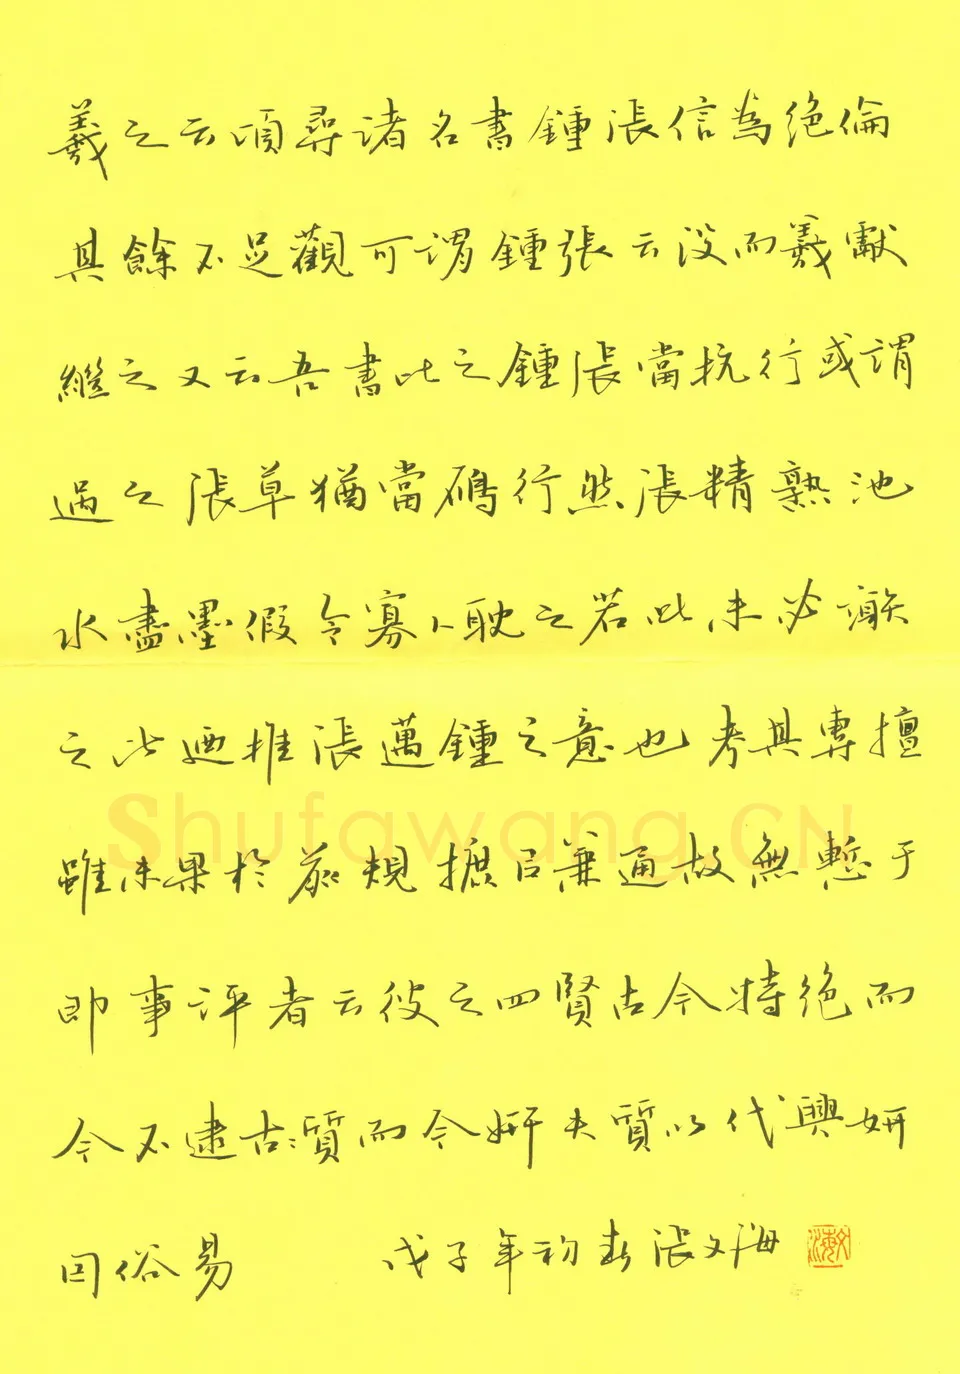 羲之云頃尋諸名書鍾張信為絕倫
其餘不足觀可謂鍾張云沒而羲獻
繼之又云吾書比之鍾張當抗行或謂
過之張草猶當鴈行然張精熟池
水盡墨假令寡人耽之若此未必謝
之此迺推張邁鍾之意也考其專擅
Shufawang.CN
雖未果於前規摭以兼通故無慙于
即事評者云彼之四賢古今特絕而
今不逮古:質而今妍夫質以代興妍
因俗易 戊子年初春張文海
文海